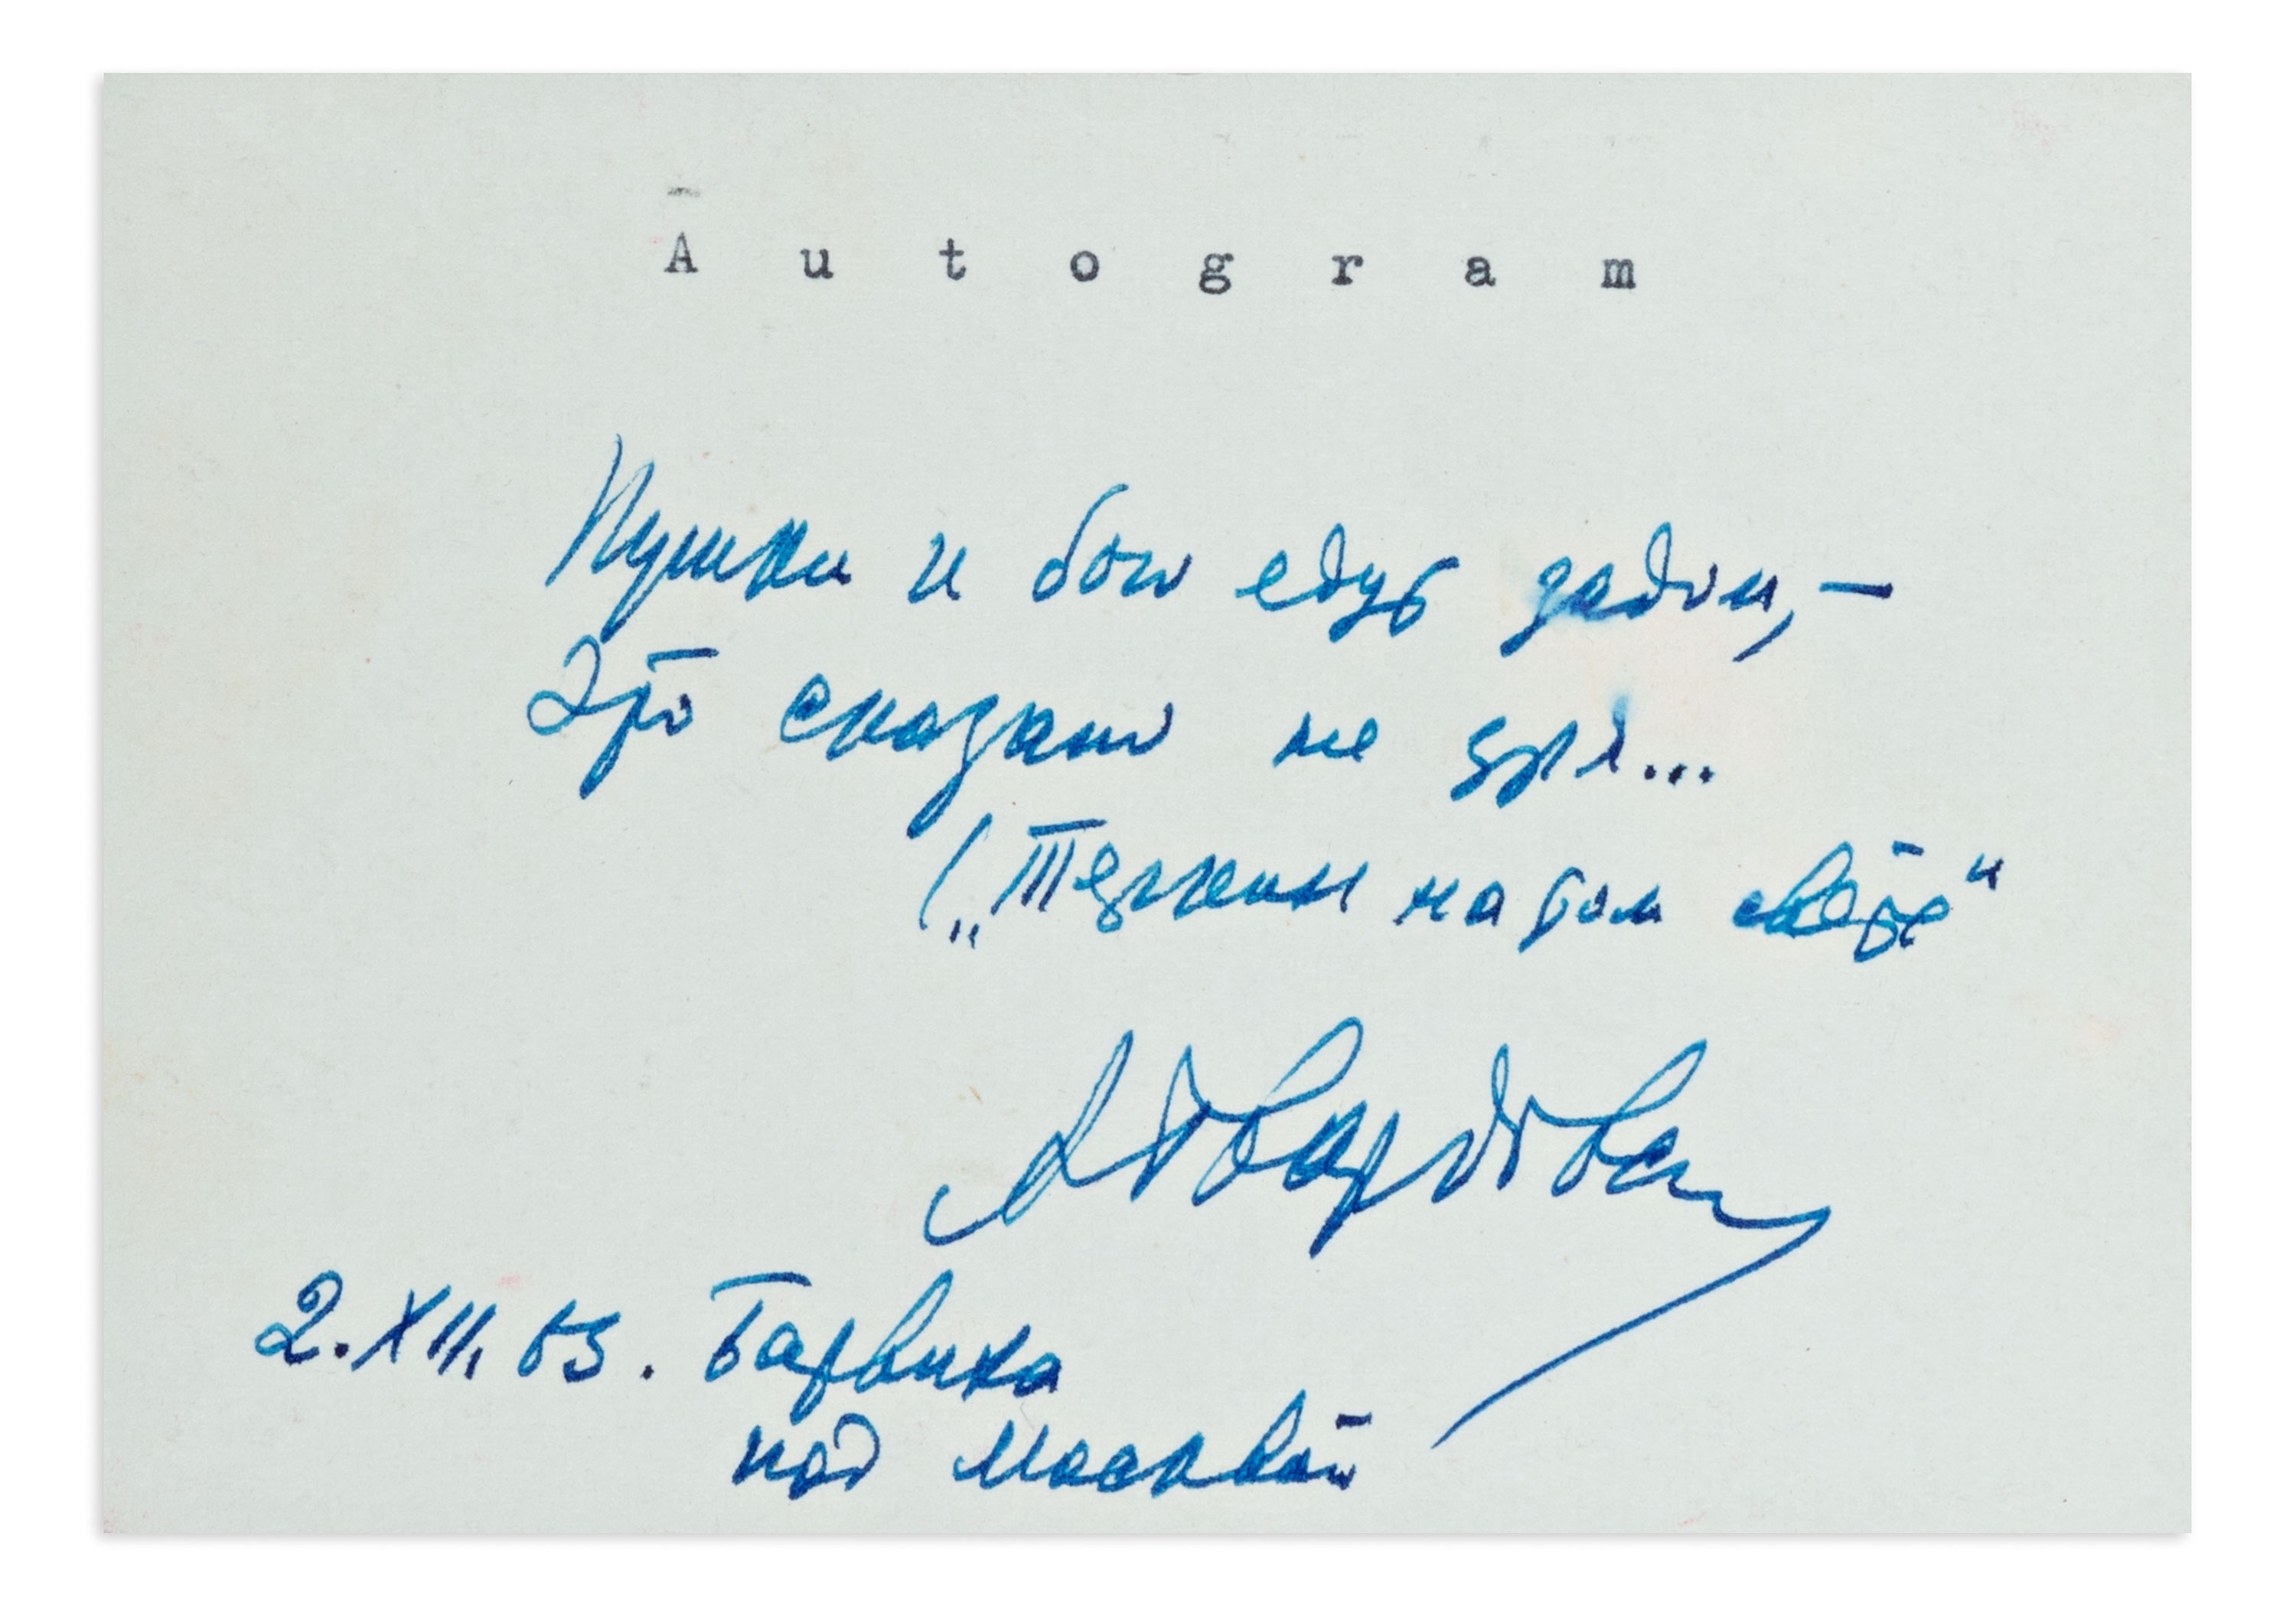 A u t o g r a m
Пушки к бою едут задом,—
Это сказано не зря...
(„Теркин на том свете"
А Твардовский
2.XII.63. Барвиха
под Москвой